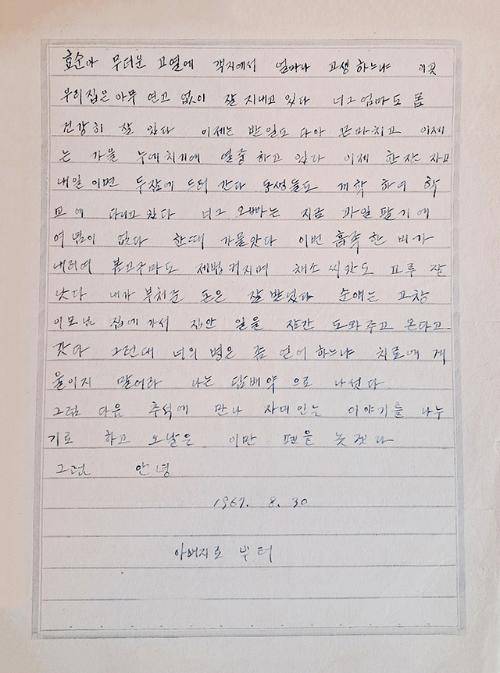 효순아 무더운 고열에 객지에서 얼마나 고생 하느냐 이곳
우리집은 아무 연고 없이 잘 지내고 있다 너그 엄마도 몸
건강히 잘 있다 이제는 밭일도 다아 끝마치고 이제
는 가을 누에치기에 열중 하고 있다 이제 한잠 자고
내일 이면 두잠에 드러 간다 동생들도 개학 하여 학
교에 다니고 있다 너그 오빠는 지금 과일 팔기에
여념이 없다 한때 가물았다 이번 흡족한 비가
내리여 봄고구마도 제법 커지며 채소 씨앗도 고루 잘
낫다 네가 부처준 돈은 잘 받었다 순애는 고창
이모님 집에 가서 집안 일을 잠간 도와주고 온다고
갓다 그런대 너의 병은 좀 언어하느냐 치료에 게
을이지 말어라 나는 담배약 으로 나섯다
그럼 다음 추석에 만나 자미있는 이야기를 나누
기로 하고 오날은 이만 펜을 놋켓다
그럼 안녕
1967. 8. 30
아버지로 부터